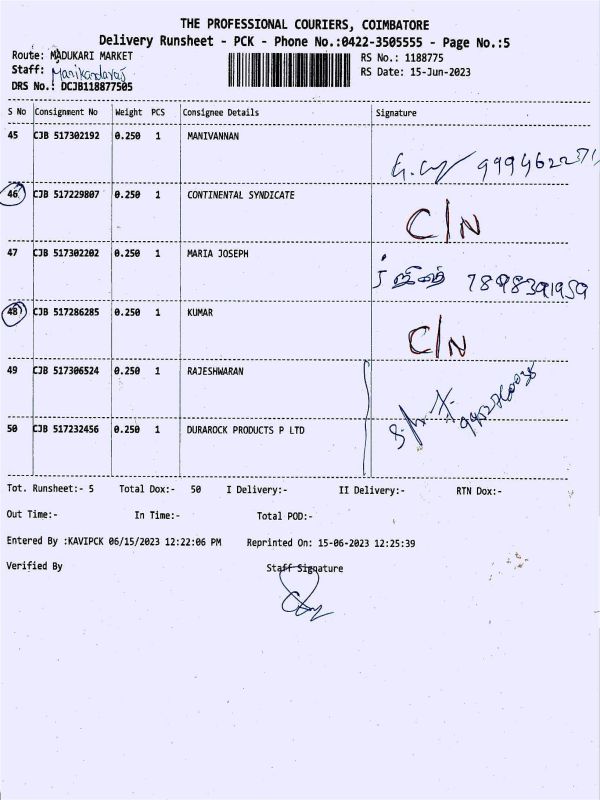 THE PROFESSIONAL COURIERS, COIMBATORE
Delivery Runsheet - PCK - Phone No.:0422-3505555 - Page No.:5
Route: MADUKARI MARKET RS No.: 1188775
Staff: Manikandaraj RS Date: 15-Jun-2023
DRS No.: DCJB118877505
S No Consignment No Weight PCS Consignee Details Signature
45 CJB 517302192 0.250 1 MANIVANNAN
46 CJB 517229807 0.250 1 CONTINENTAL SYNDICATE C/N
47 CJB 517302202 0.250 1 MARIA JOSEPH 7898391959
48 CJB 517286285 0.250 1 KUMAR C/N
49 CJB 517306524 0.250 1 RAJESHWARAN
50 CJB 517232456 0.250 1 DURAROCK PRODUCTS P LTD
Tot. Runsheet:- 5 Total Dox:- 50 I Delivery:- II Delivery:- RTN Dox:-
Out Time:- In Time:- Total POD:-
Entered By :KAVIPCK 06/15/2023 12:22:06 PM Reprinted On: 15-06-2023 12:25:39
Verified By Staff Signature